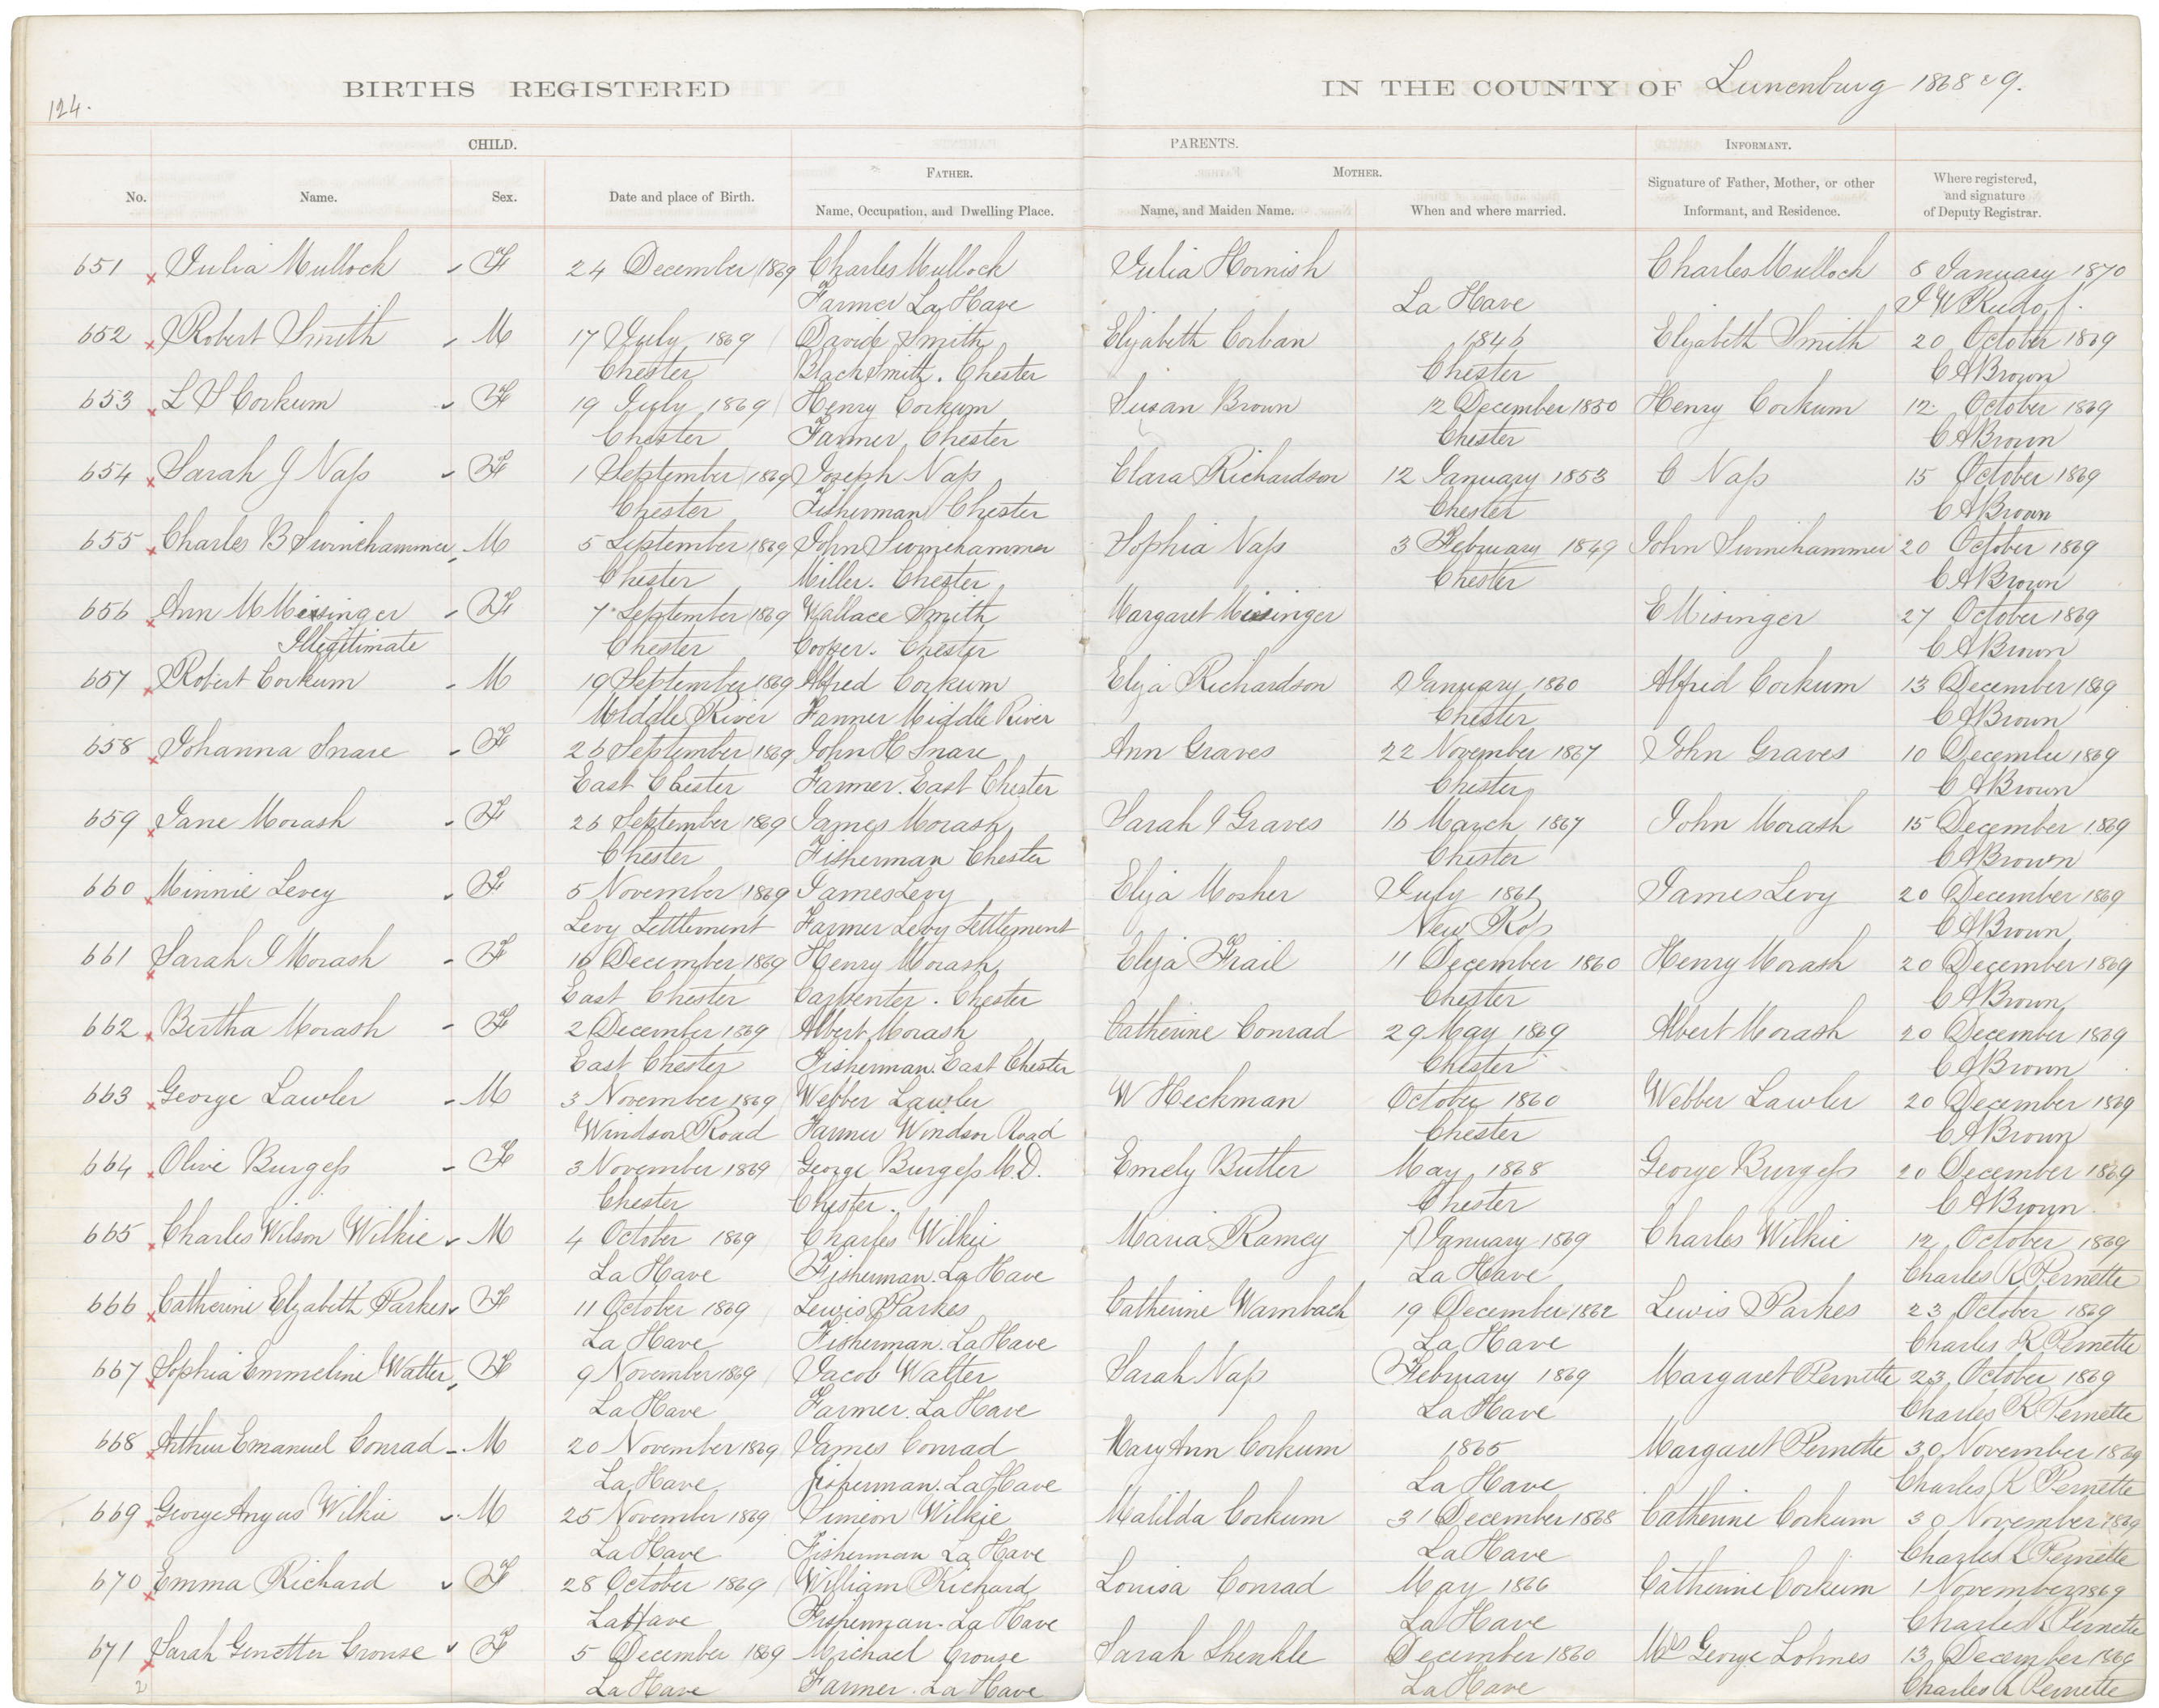 124.
BIRTHS REGISTERED IN THE COUNTY OF Lunenburg 1868 & 9.
CHILD. PARENTS. INFORMANT.
FATHER. MOTHER.
No. Name. Sex. Date and place of Birth. Name, Occupation, and Dwelling Place. Name, and Maiden Name. When and where married. Signature of Father, Mother, or other Informant, and Residence. Where registered, and signature of Deputy Registrar.
651 Julia Mullock F 24 December 1869 Charles Mullock Julia Hornish Charles Mullock 8 January 1870
Farmer La Have La Have J W Rudolf.
652 Robert Smith M 17 July 1869 David Smith Elizabeth Corban 1846 Elizabeth Smith 20 October 1869
Chester Blacksmith. Chester Chester C A Brown
653 L S Corkum F 19 July 1869 Henry Corkum Susan Brown 12 December 1850 Henry Corkum 12 October 1869
Chester Farmer, Chester Chester C A Brown
654 Sarah J Nass F 1 September 1869 Joseph Nass Clara Richardson 12 January 1853 C Nass 15 October 1869
Chester Fisherman Chester Chester C A Brown
655 Charles B Swinehammer M 5 September 1869 John Swinehammer Sophia Nass 3 February 1849 John Swinehammer 20 October 1869
Chester Miller. Chester Chester C A Brown
656 Ann M Meisinger F 7 September 1869 Wallace Smith Margaret Meisinger E Misinger 27 October 1869
Illegitimate Chester Cooper. Chester C A Brown
657 Robert Corkum M 19 September 1869 Alfred Corkum Eliza Richardson January 1860 Alfred Corkum 13 December 1869
Middle River Farmer Middle River Chester C A Brown
658 Johanna Snare F 26 September 1869 John H Snare Ann Graves 22 November 1867 John Graves 10 December 1869
East Chester Farmer. East Chester Chester C A Brown
659 Jane Morash F 26 September 1869 James Morash Sarah J Graves 16 March 1867 John Morash 15 December 1869
Chester Fisherman Chester Chester C A Brown
660 Minnie Levey F 5 November 1869 James Levy Eliza Mosher July 1861 James Levy 20 December 1869
Levy Settlement Farmer Levy Settlement New Ross C A Brown
661 Sarah J Morash F 16 December 1869 Henry Morash Eliza Frail 11 December 1860 Henry Morash 20 December 1869
East Chester Carpenter. Chester Chester C A Brown
662 Bertha Morash F 2 December 1869 Albert Morash Catherine Conrad 29 May 1869 Albert Morash 20 December 1869
East Chester Fisherman. East Chester Chester C A Brown
663 George Lawler M 3 November 1869 Webber Lawler W Heckman October 1860 Webber Lawler 20 December 1869
Windsor Road Farmer Windsor Road Chester C A Brown
664 Olive Burgess F 3 November 1869 George Burgess M.D. Emely Butler May 1868 George Burgess 20 December 1869
Chester Chester. Chester C A Brown
665 Charles Wilson Wilkie M 4 October 1869 Charles Wilkie Maria Ramey 7 January 1869 Charles Wilkie 12 October 1869
La Have Fisherman. La Have La Have Charles R Pernette
666 Catherine Elizabeth Parkes F 11 October 1869 Lewis Parkes Catherine Wambach 19 December 1862 Lewis Parkes 23 October 1869
La Have Fisherman. La Have La Have Charles R Pernette
667 Sophia Emmeline Walter F 9 November 1869 Jacob Walter Sarah Nass February 1869 Margaret Pernette 23 October 1869
La Have Farmer. La Have La Have Charles R Pernette
668 Arthur Emanuel Conrad M 20 November 1869 James Conrad Mary Ann Corkum 1865 Margaret Pernette 30 November 1869
La Have Fisherman. La Have La Have Charles R Pernette
669 George Angus Wilkie M 25 November 1869 Simeon Wilkie Matilda Corkum 31 December 1868 Catherine Corkum 30 November 1869
La Have Fisherman La Have La Have Charles R Pernette
670 Emma Richard F 28 October 1869 William Richard Louisa Conrad May 1866 Catherine Corkum 1 November 1869
La Have Fisherman. La Have La Have Charles R Pernette
671 Sarah Genetter Crouse F 5 December 1869 Michael Crouse Sarah Shenkle December 1860 Mrs George Lohnes 13 December 1869
2 La Have Farmer. La Have La Have Charles R Pernette